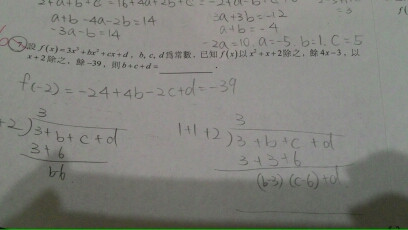 2+a+b+c=16+4a+2b+c=-2+a-b+c
a+b-4a-2b=14
3a+3b=-12
-3a-b=14
a+b=-4
-2a=10, a=-5, b=1, C=5
設 f(x)=3x³+bx²+cx+d，b, c, d爲常數，已知 f(x)以 x²+x+2除之，餘 4x-3，以
x+2除之，餘 -39，則 b+c+d=
f(-2)=-24+4b-2c+d=-39
3
+2)3+b+c+d
3+6
b-6
3
1+1+2)3+b+c+d
3+3+6
(b-3)(c-6)+d